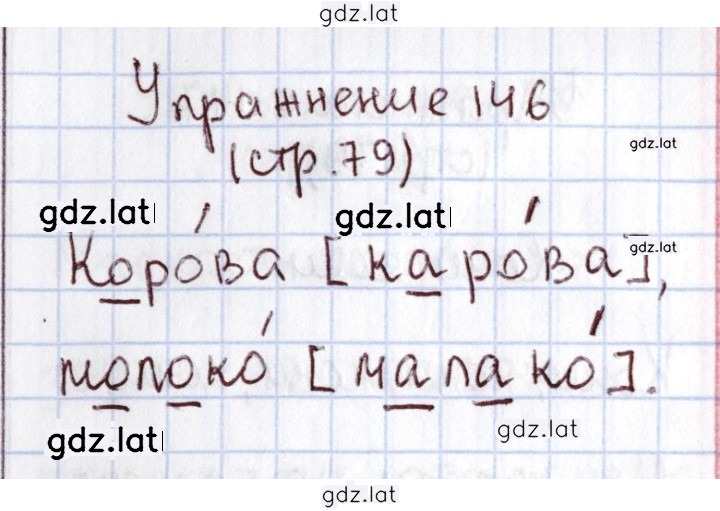 gdz.lat
Упражнение 146
gdz.lat
(стр.79)
gdz.lat gdz.lat
Коро́ва [каро́ва], gdz.lat
молоко́ [малако́].
gdz.lat gdz.lat
gdz.lat